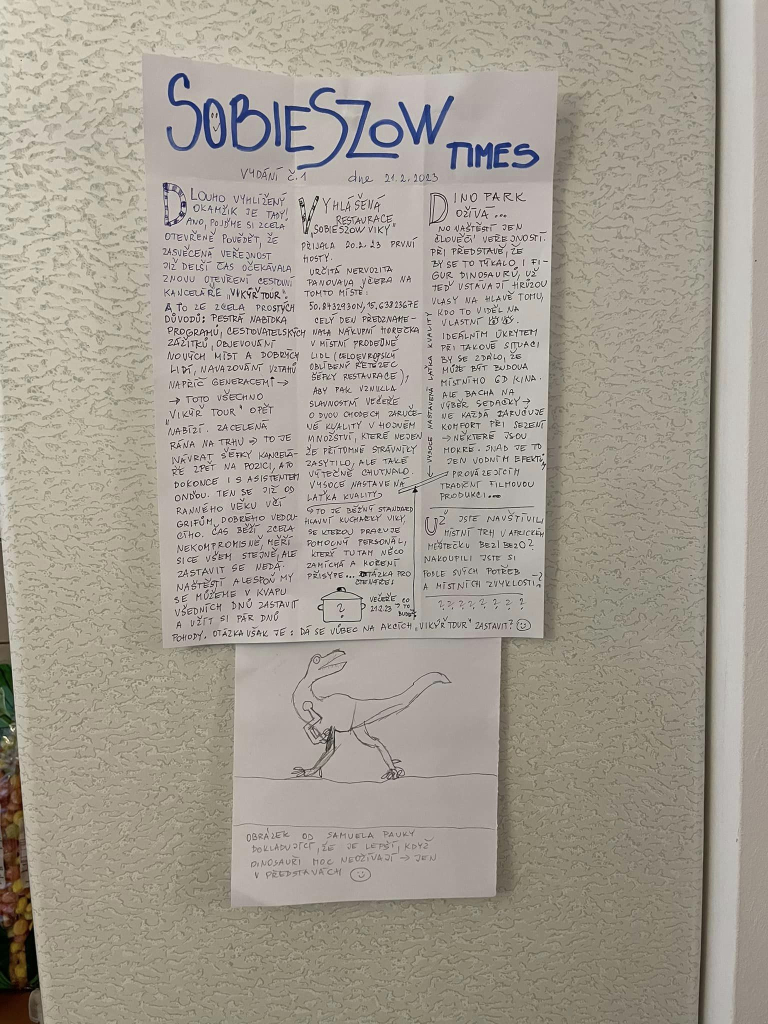 SOBIESZOW TIMES
VYDÁNÍ Č.1 dne 21.2.2023
DLOUHO VYHLÍŽENÝ
OKAMŽIK JE TADY!
ANO, POJĎME SI ZCELA
OTEVŘENĚ POVĚDĚT, ŽE
ZASVĚCENÁ VEŘEJNOST
JIŽ DELŠÍ ČAS OČEKÁVALA
ZNOVU OTEVŘENÍ CESTOVNÍ
KANCELÁŘE "VIKÝŘ TOUR".
A TO ZE ZCELA PROSTÝCH
DŮVODŮ: PESTRÁ NABÍDKA
PROGRAMŮ, CESTOVATELSKÝCH
ZÁŽITKŮ, OBJEVOVÁNÍ
NOVÝCH MÍST A DOBRÝCH
LIDÍ, NAVAZOVÁNÍ VZTAHŮ
NAPŘÍČ GENERACEMI →
→ TOTO VŠECHNO
"VIKÝŘ TOUR" OPĚT
NABÍZÍ. ZACELENÁ
RÁNA NA TRHU → TO JE
NÁVRAT ŠÉFKY KANCELÁ-
ŘE ZPĚT NA POZICI, A TO
DOKONCE I S ASISTENTEM
ONDOU. TEN SE JIŽ OD
RANNÉHO VĚKU UČÍ
GRIFŮM, DOBRÉHO VEDOU-
CÍHO. ČAS BĚŽÍ ZCELA
NEKOMPROMISNĚ, MĚŘÍ
SICE VŠEM STEJNĚ, ALE
ZASTAVIT SE NEDÁ.
NAŠTĚSTÍ ALESPOŇ MY
SE MŮŽEME V KVAPU
VŠEDNÍCH DNŮ ZASTAVIT
A UŽÍT SI PÁR DNŮ
POHODY. OTÁZKA VŠAK JE: DÁ SE VŮBEC NA AKCÍCH "VIKÝŘ TOUR" ZASTAVIT?
VYHLÁŠENÁ
RESTAURACE
"SOBIESZOW VIKY"
PŘIJALA 20.2.23 PRVNÍ
HOSTY.
URČITÁ NERVOZITA
PANOVALA VČERA NA
TOMTO MÍSTĚ:
50.8432930N, 15.6382367E
CELÝ DEN PŘEDZNAME-
NALA NÁKUPNÍ HOREČKA
V MÍSTNÍ PRODEJNĚ
LIDL (CELOEVROPSKÝ
OBLÍBENÝ ŘETĚZEC
ŠÉFKY RESTAURACE),
ABY PAK VZNIKLA
SLAVNOSTNÍ VEČEŘE
O DVOU CHODECH ZARUČE-
NÉ KVALITY V HOJNÉM
MNOŽSTVÍ, KTERÉ NEJEN
ŽE PŘÍTOMNÉ STRÁVNÍKY
ZASYTILO, ALE TAKÉ
VÝTEČNĚ CHUTNALO.
VYSOCE NASTAVENÁ
LAŤKA KVALITY
→ TO JE BĚŽNÝ STANDARD
HLAVNÍ KUCHAŘKY VIKY,
SE KTEROU PRACUJE
POMOCNÝ PERSONÁL,
KTERÝ TU TAM NĚCO
ZAMÍCHÁ A KOŘENÍ
PŘISYPE... OTÁZKA PRO
ČTENÁŘE:
?
VEČEŘE
21.2.23 → CO
TO
BUDE?
VYSOCE NASTAVENÁ LAŤKA KVALITY
DINO PARK
OŽÍVÁ...
NO NAŠTĚSTÍ JEN
ČLOVĚČÍ VEŘEJNOSTÍ.
PŘI PŘEDSTAVĚ, ŽE
BY SE TO TÝKALO I FI-
GUR DINOSAURŮ, UŽ
TEĎ VSTÁVAJÍ HRŮZOU
VLASY NA HLAVĚ TOMU,
KDO TO VIDĚL NA
VLASTNÍ
IDEÁLNÍM ÚKRYTEM
PŘI TAKOVÉ SITUACI
BY SE ZDÁLO, ŽE
MŮŽE BÝT BUDOVA
MÍSTNÍHO 6D KINA.
ALE BACHA NA
VÝBĚR SEDAČKY →
NE KAŽDÁ ZARUČUJE
KOMFORT PŘI SEZENÍ
→ NĚKTERÉ JSOU
MOKRÉ. SNAD JE TO
JEN VODNÍM EFEKTEM,
PROVÁZEJÍCÍM
TRADIČNÍ FILMOVOU
PRODUKCI...
UŽ JSTE NAVŠTÍVILI
MÍSTNÍ TRH V AFRICKÉM
MĚSTEČKU BEZIBEZO?
NAKOUPILI JSTE SI
PODLE SVÝCH POTŘEB
A MÍSTNÍCH ZVYKLOSTÍ?
? ? ? ? ? ? ? ?
OBRÁZEK OD SAMUELA PAUKY
DOKLADUJÍCÍ, ŽE JE LEPŠÍ, KDYŽ
DINOSAUŘI MOC NEOŽÍVAJÍ → JEN
V PŘEDSTAVÁCH